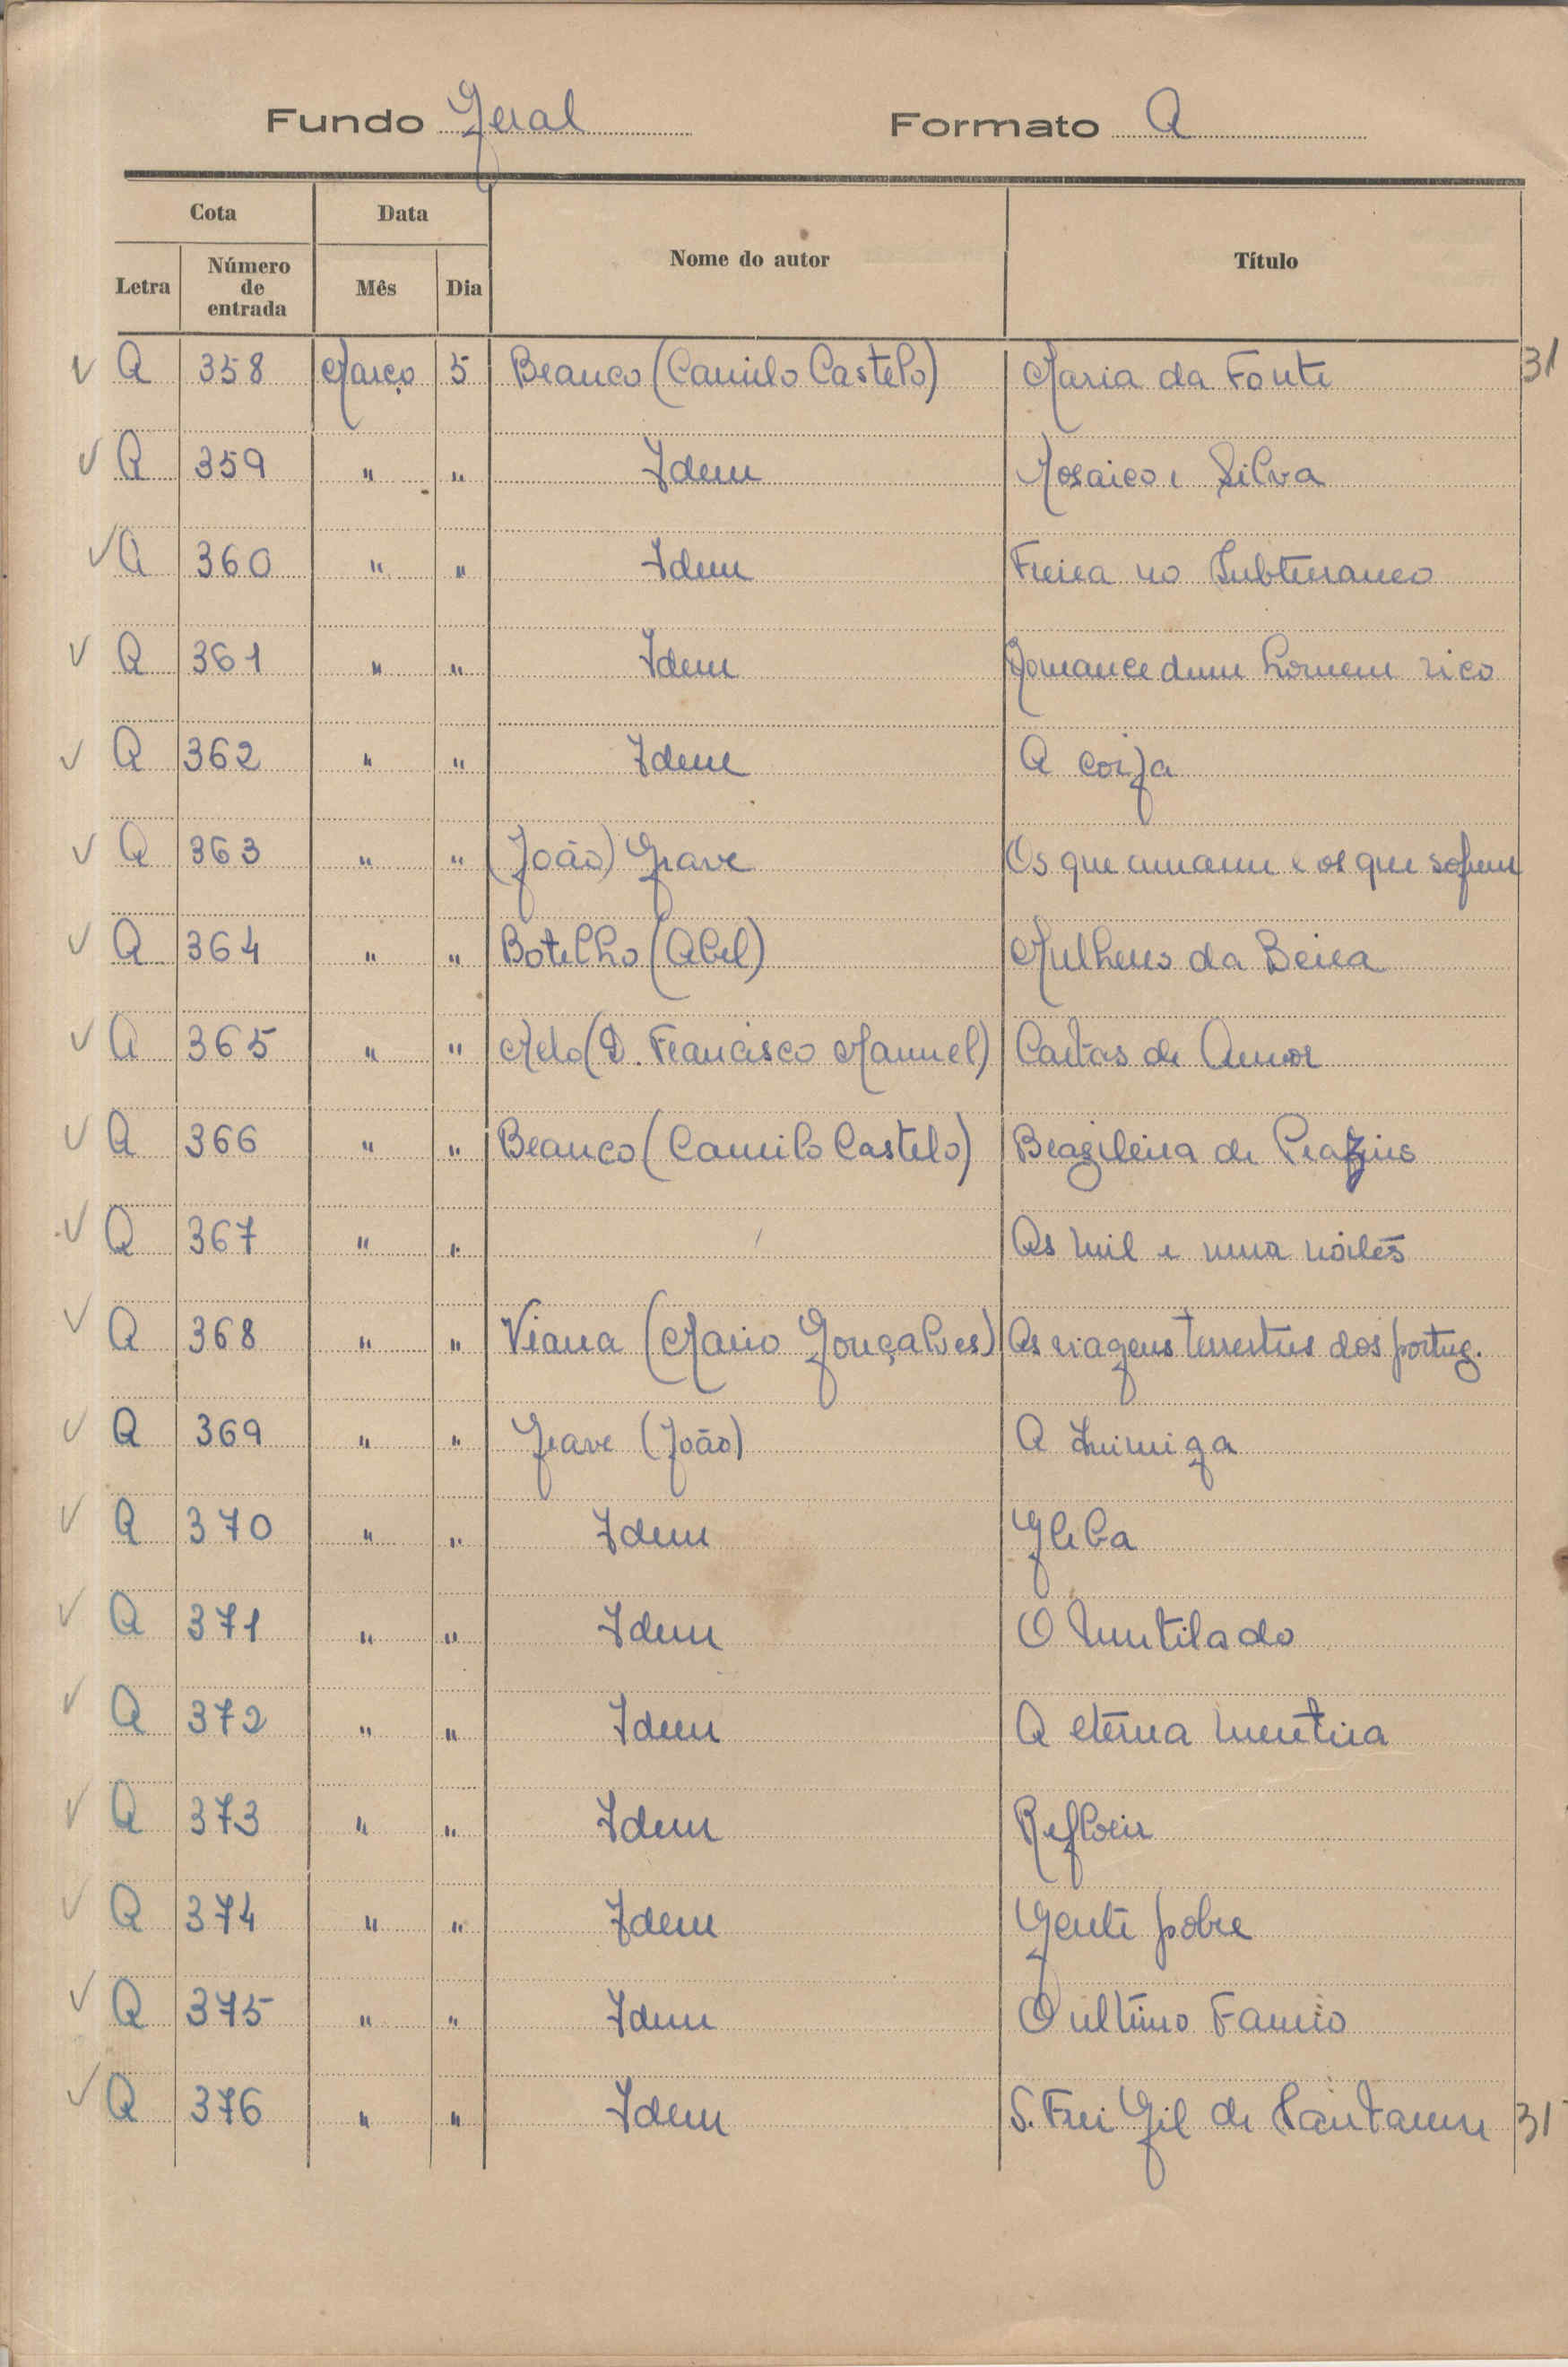 Fundo Geral Formato A
Cota Data Nome do autor Título
Letra Número de entrada Mês Dia
V A 358 Março 5 Branco (Camilo Castelo) Maria da Fonte 31
V A 359 " " Idem Mosaico e Silva
V A 360 " " Idem Freira no Subterraneo
V A 361 " " Idem Romance dum homem rico
V A 362 " " Idem A corja
V A 363 " " (João) Grave Os que amam e os que sofrem
V A 364 " " Botelho (Abel) Mulheres da Beira
V A 365 " " Melo (D. Francisco Manuel) Cartas de Amor
V A 366 " " Branco (Camilo Castelo) Brazileira de Prazins
V A 367 " " As mil e uma noites
V A 368 " " Viana (Mario Gonçalves) As viagens terrestres dos portug.
V A 369 " " Grave (João) A Inimiga
V A 370 " " Idem Gleba
V A 371 " " Idem O Mutilado
V A 372 " " Idem A eterna mentira
V A 373 " " Idem Reflorir
V A 374 " " Idem Gente pobre
V A 375 " " Idem O ultimo Fauno
V A 376 " " Idem S. Frei Gil de Santarem 31